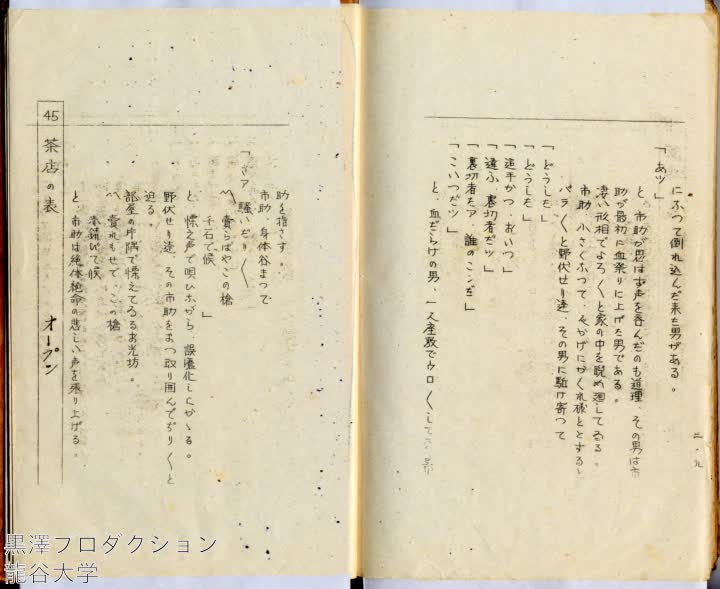 にふつて倒れ込んだ来た男がある。
「あツ」
と、市助が思はず声を呑んだのも道理、その男は市
助が最初に血祭りに上げた男である。
凄い形相でよろ〱と家の中を睨め廻してゐる。
市助、小さくふつて、ものかげにかくれ様とする。
バラ〱と野伏せり達、その男に駈け寄つて
「どうした」
「どうした」
「追手かつ、おいつ」
「違ふ、裏切者だツ」
「裏切者たア、誰のこンだ」
「こいつだツ」
と、血だらけの男、一人座敷でウロ〱して
三・九
助を指さす。
市助、身体谷まつて
「さア、騒いだり〱
〽 賣らばやこの槍
千石で候 」
と、慄え声で唄ひながら、誤魔化しにかゝる。
野伏せり達、その市助をまつ取り囲んでぢり〱と
迫る。
部屋の片隅で慄えてゐるお光坊。
〽 賣れもせで、この槍
錆びて候
と、市助は絶体絶命の悲しい声を張り上げる。
45 茶店の表 オープン
黒澤プロダクション
龍谷大学